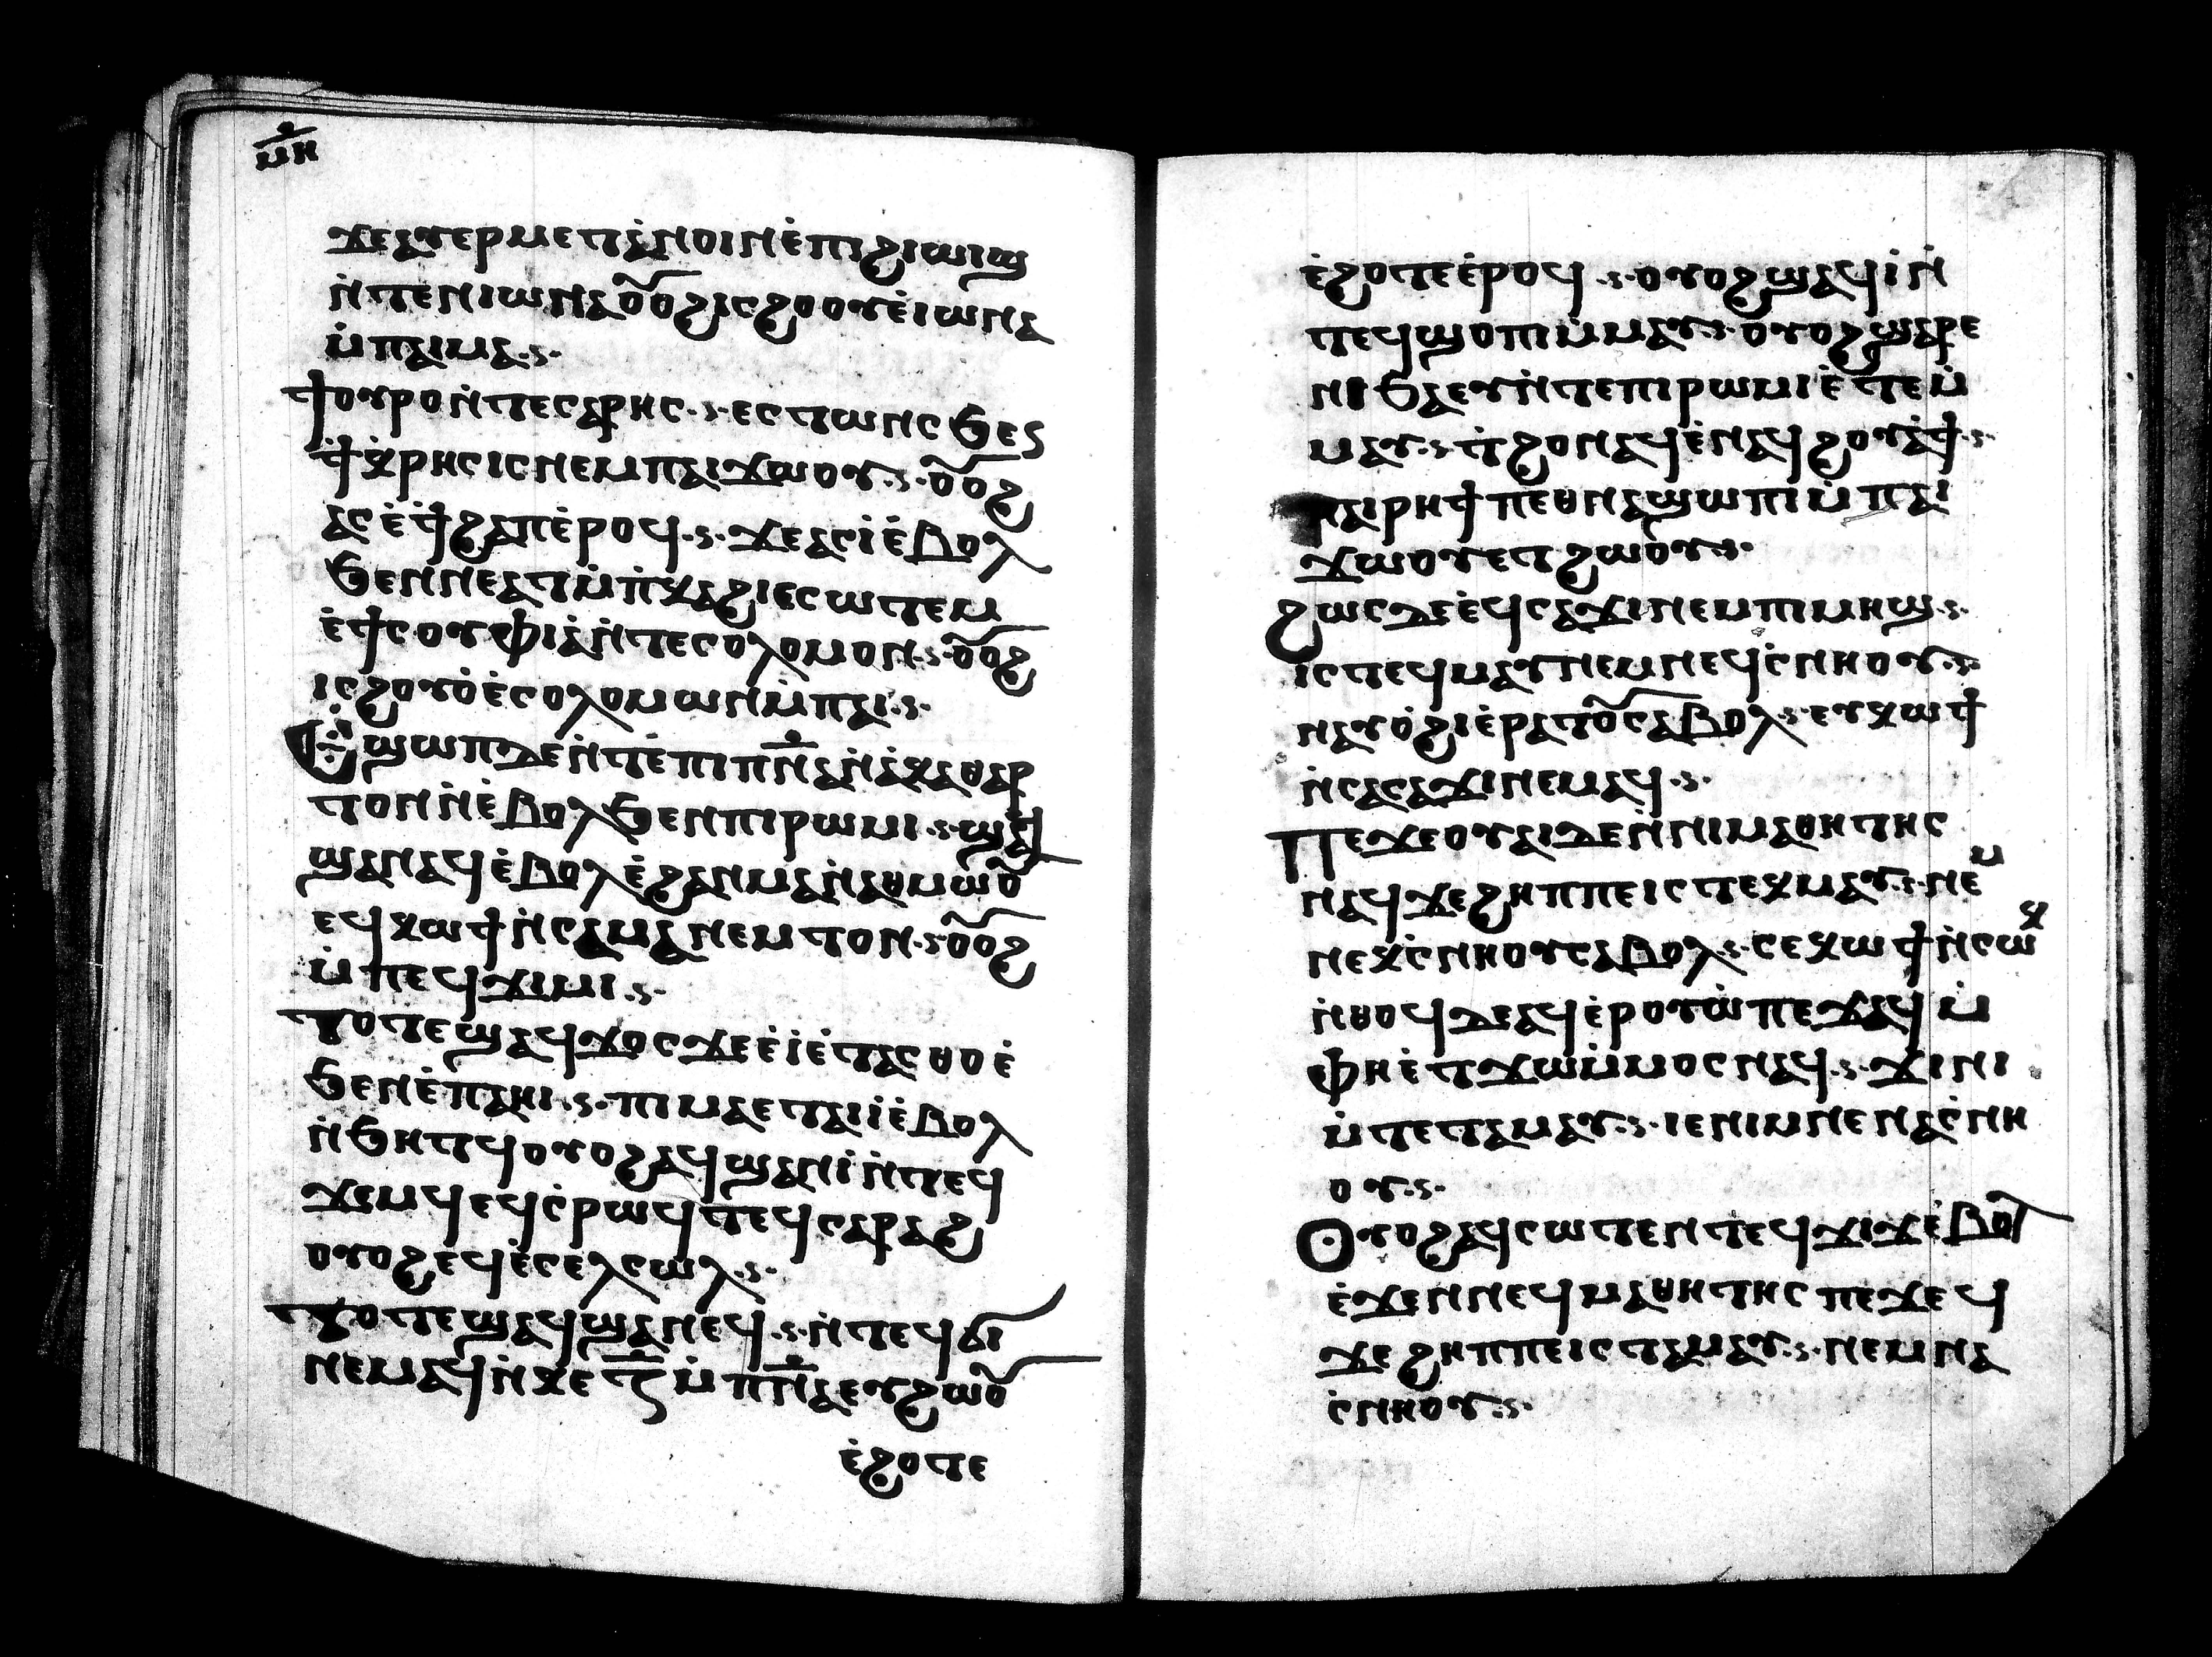 ⲙ̅ⲏ̅
ϫⲉⲁⲩⲉⲣⲙⲉⲧⲁ̀ⲛⲟⲓⲛⲉ̀ⲡⲓϩⲓⲱⲓϣ
ⲛ̀ⲧⲉⲛⲓⲱⲛⲁⲟ̅ⲟϩⲓⲥϩⲟⲟⲩⲉ̀ⲓⲱⲛⲁ
ⲙ̀ⲡⲁⲓⲙⲁ
ϯⲟⲩⲣⲟⲛ̀ⲧⲉⲥⲁⲣⲏⲥ ⲉⲥⲧⲱⲛⲥϧⲉⲛ
ϯⲭ̀ⲣⲏⲥⲓⲥⲛⲉⲙⲡⲁⲓϫⲱⲟⲩ ⲟ̅ⲟϩ
ⲁⲥⲉ̀ϯϩⲁⲡⲉ̀ⲣⲟϥ ϫⲉⲁⲥⲓ̀ⲉ̀ⲃⲟⲗ
ϧⲉⲛⲛⲉⲁⲧⲙ̀ⲡ̀ⲭⲁϩⲓⲉⲥⲱⲧⲉⲙ
ⲉ̀ϯⲥⲟⲩⲫⲓⲁ̀ⲛ̀ⲧⲉⲥⲟⲗⲟⲙⲟⲛ ⲟ̅ⲟϩ
ⲓⲥϩⲟⲩⲟ̀ⲉ̀ⲥⲟⲗⲟⲙⲱⲛⲙ̀ⲡⲁⲓ
Ⲉ̀ϣⲱⲡⲇⲉⲛ̀ⲧⲉ̀ⲡⲓⲡ̅ⲛ̅ⲁⲛ̀ⲁ̀ⲭⲁⲑⲁⲣ
ⲧⲟⲛⲛ̀ⲉ̀ⲃⲟⲗϧⲉⲛⲡⲓⲣⲱⲙⲓ ϣⲁϥ
ϣⲁⲛⲁϥⲉ̀ⲃⲟⲗⲉ̀ϩⲁⲛⲙⲁⲛ̀ⲁⲑⲙⲱⲟ̅
ⲉϥⲭⲱϯⲛ̀ⲥⲁⲙⲁⲛⲉⲙⲧⲟⲛ ⲟ̅ⲟϩ
ⲙ̀ⲡⲉϥϫⲓⲙⲓ
ⲧⲟⲧⲉϣⲁϥϫⲟⲥϫⲉⲉ̀ⲓ̀ⲉ̀ⲧⲁⲥⲑⲟⲉ̀
ϧⲉⲛⲉ̀ⲡⲁⲏⲓ ⲡⲓⲙⲁⲉⲧⲁⲓⲓ̀ⲉ̀ⲃⲟⲗ
ⲛ̀ϧⲏⲧϥⲟⲩⲟϩⲁϥϣⲁⲛⲓ̀ⲛ̀ⲧⲉϥ
ϫⲉⲙϥⲉϥⲥ̀ⲣⲱϥⲧⲉϥⲥⲁⲣⲁϩ
ⲟⲩⲟϩⲉϥⲉ̀ⲥⲉⲗⲥⲱⲗ
ⲧⲟⲧⲉϣⲁϥϣⲁⲛⲉϥ ⲛ̀ⲧⲉϥϭⲓ
ⲛⲉⲙⲁϥⲛ̀ⲕⲉⲍ̅ⲙ̀ⲡ̅ⲛ̅ⲁⲉⲩϩⲱⲟ̅
ⲉ̀ϩⲟⲧⲉ
ⲉ̀ϩⲟⲧⲉⲉ̀ⲣⲟϥ ⲟⲩⲟϩϣⲁϥⲓ̀ⲛ̀
ⲧⲉϥϣⲟⲡⲓⲙ̀ⲙⲁⲩ ⲟⲩⲟϩϣⲁⲣⲉ
ⲛⲓϧⲁⲉⲩⲛ̀ⲧⲉⲡⲓⲣⲱⲙⲓⲉ̀ⲧⲉⲙ̀
ⲙⲁⲩ ⲧ̀ϩⲟⲛⲁϥⲉ̀ⲛⲁϥϩⲟⲩⲁ̀ϯ
ⲡⲁⲓⲣⲏϯⲡⲉⲑⲛⲁϣⲱⲡⲓⲙ̀ⲡⲁⲓ
ϫⲱⲟⲩⲉⲧϩⲱⲟ̀ⲩ
ϩⲱⲥⲇⲉⲉ̀ϥⲥⲁϫⲓⲛⲉⲙⲡⲓⲙⲏϣ
ⲓⲥⲧⲉϥⲙⲁⲩⲛⲉⲙⲛⲉϥⲥ̀ⲛⲏⲟⲩ
ⲛⲁⲩⲟ̀ϩⲓⲉ̀ⲣⲁⲧⲟ̅ⲥⲁⲃⲟⲗ ⲉⲩⲭⲱϯ
ⲛ̀ⲥⲁⲥⲁϫⲓⲛⲉⲙⲁϥ
Ⲡⲉϫⲉⲟⲩⲁⲓⲇⲉⲛ̀ⲛⲓⲙⲁⲑⲏⲧⲏⲥ
ⲛⲁϥϫⲉϩⲏⲡⲡⲉⲓⲥⲧⲉⲕⲙⲁⲩ ⲛⲉⲙ
ⲛⲉⲕⲥ̀ⲛⲏⲟⲩⲥⲁⲃⲟⲗ ⲥⲉⲭⲱϯⲛ̀ⲥⲱⲕ
ⲛ̀ⲑⲟϥⲇⲉⲁϥⲉ̀ⲣⲟⲩⲱ̀ⲡⲉϫⲁϥⲙ̀
ⲫⲏⲉ̀ⲧϫⲱⲙ̀ⲙⲟⲥⲛⲁϥ ϫⲓⲛⲓ
ⲙ̀ⲧⲉⲧⲁⲙⲁⲩ ⲓⲉⲛⲓⲙⲛⲉⲛⲁⲥ̀ⲛⲏ
ⲟⲩ
Ⲟⲩⲟϩⲁϥⲥⲱⲧⲉⲛⲧⲉϥϫⲓϫⲉ̀ⲃⲟⲗ
ⲉ̀ϫⲉⲛⲛⲉϥⲙⲁⲑⲏⲧⲏⲥⲡⲉϫⲉϥ
ϫⲉϩⲏⲡⲡⲉⲓⲥⲧⲁⲙⲁⲩ ⲛⲉⲙⲛⲁ
ⲥ̀ⲛⲏⲟⲩ